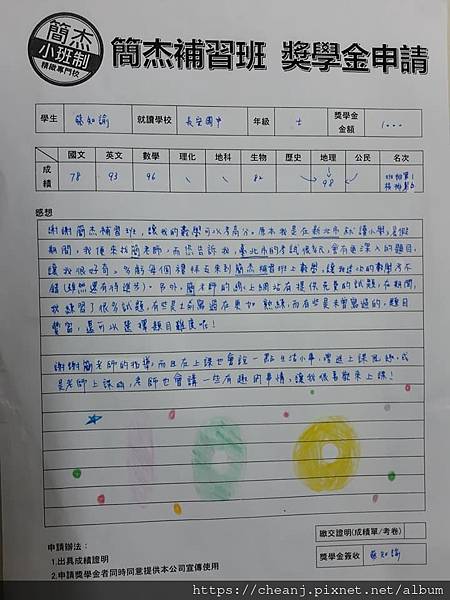 簡杰
小班制
精緻專門校
簡杰補習班 獎學金申請
學生 蔡知諭 就讀學校 長安國中 年級 七 獎學金金額 1000
國文 英文 數學 理化 地科 生物 歷史 地理 公民 名次
成績 78 93 96 \ \ 82 98
感想
謝謝簡杰補習班,讓我的數學可以考高分。原本我是在新北市就讀小學,暑假
期間,我便來找簡老師,而您告訴我,臺北市的考試很
讓我很好奇。 簡杰補習班上數學,讓我 的數學考不
錯(雖然還有待進步)。另外,簡老師的線上網站有提供免費的試題,在期間,
我練習了很多試題,有些是 更加熟練,而有些是未嘗過的,題目
豐富,還可以選擇題目難度呢!
謝謝簡老師的指導,而且在上課也會說一點生活小事,增進上課氣氛,或
是老師上課時,老師也會講一些有趣的事情,讓我很喜歡來上課!
100
繳交證明(成績單/考卷)
獎學金簽收 蔡知諭
申請辦法:
1.出具成績證明
2.申請獎學金者同時同意提供本公司宣傳使用
https://cheanj.pixnet.net/album